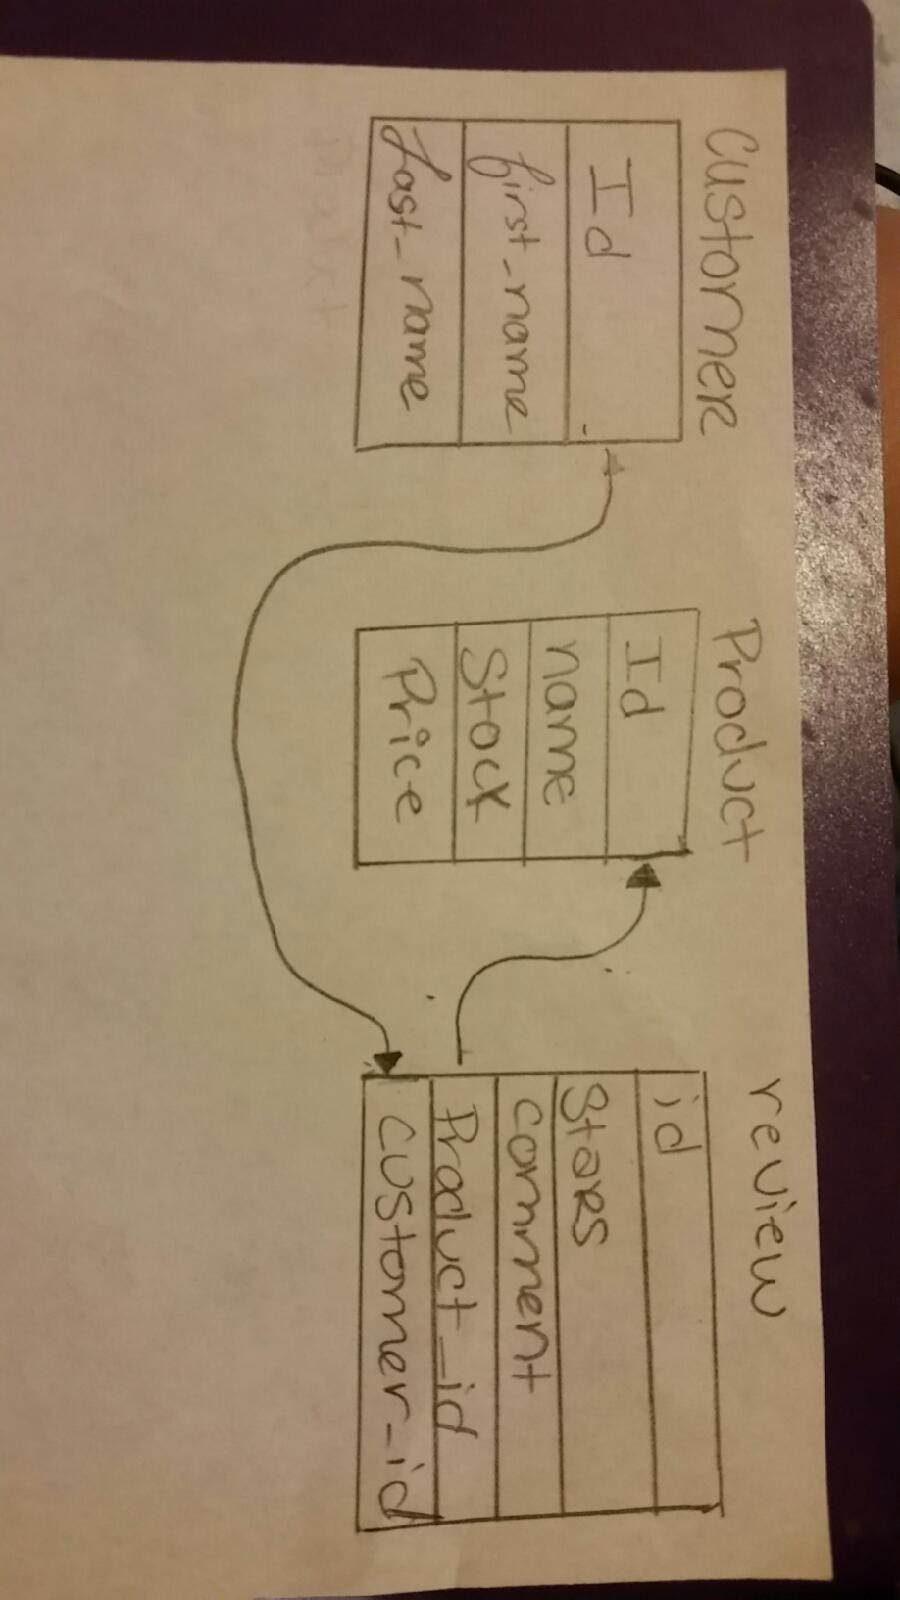 Customer
Id
first_name
Last_name
Product
Id
name
Stock
Price
review
id
Stars
comment
Product_id
customer_id